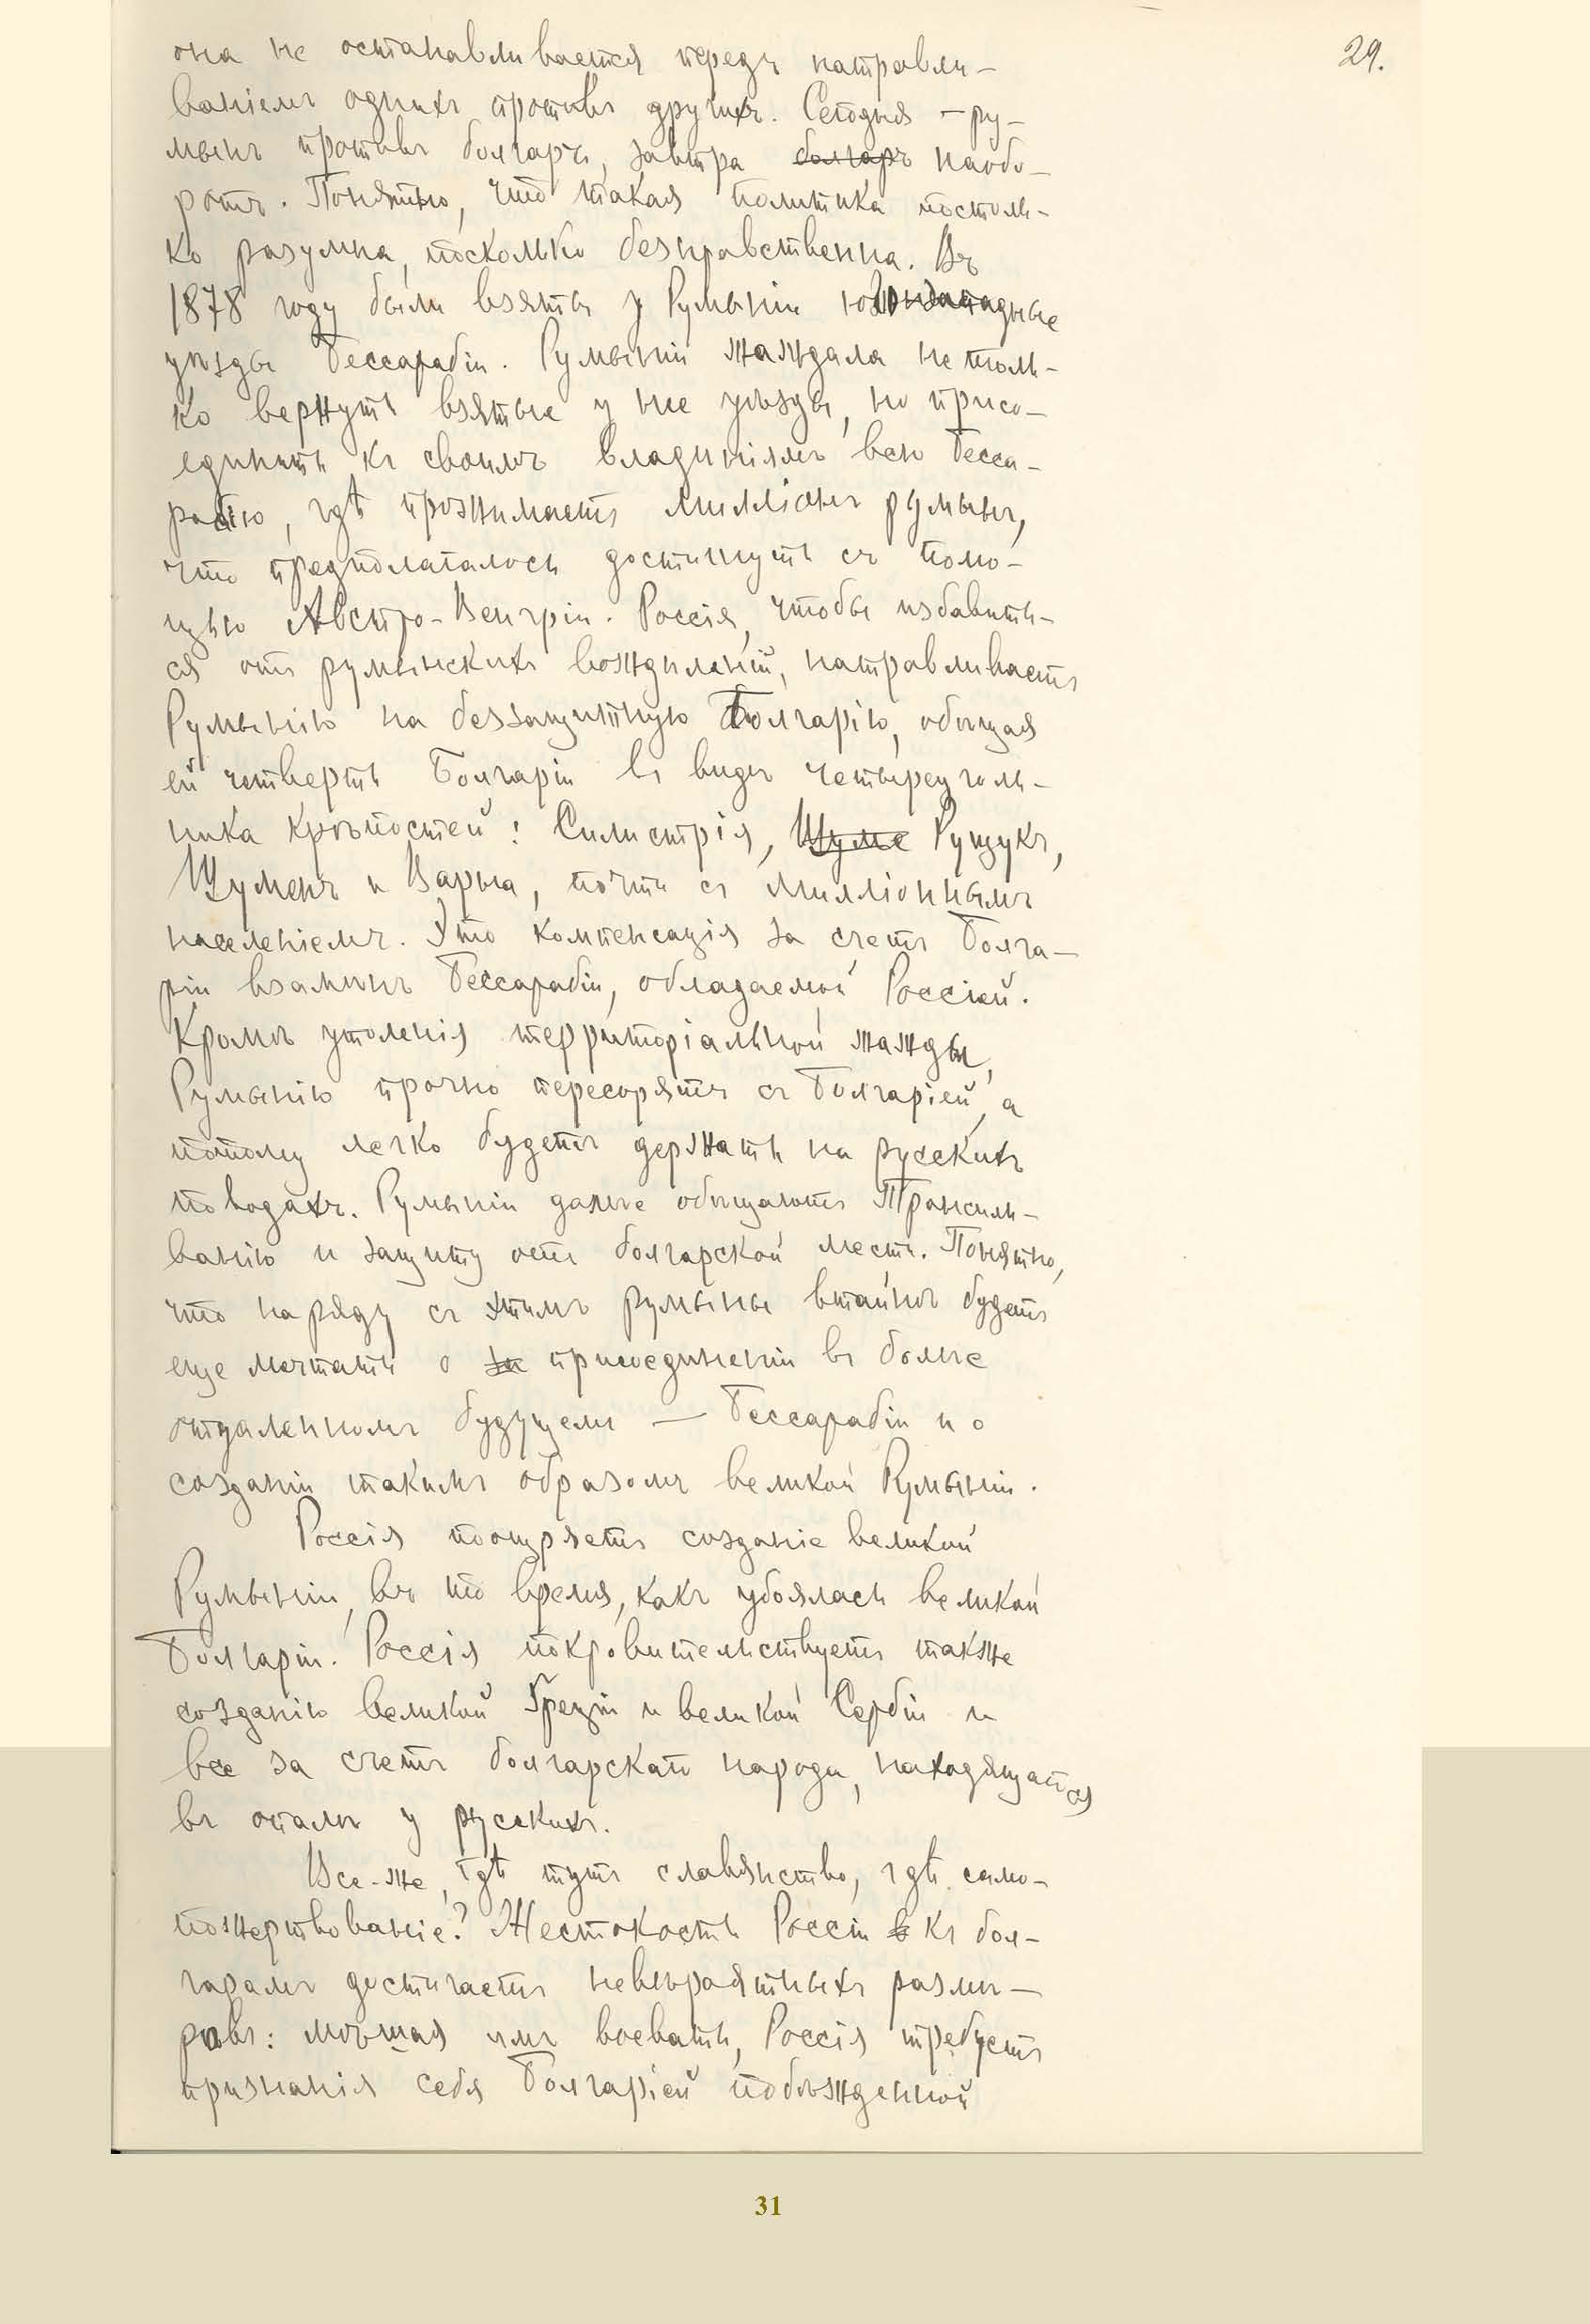 29.
она не останавливается передъ натравли-
ваніемъ однихъ противъ другихъ. Сегодня – ру-
мынъ противъ болгаръ, завтра болгаръ наобо-
ротъ. Понятно, что такая политика постоль-
ко разумна, поскольку безнравственна. Въ
1878 году были взяты у Румыніи юго-западные
уѣзды Бессарабіи. Румынія жаждала не толь-
ко вернуть взятые у нее уѣзды, но присо-
единить къ своимъ владѣніямъ всю Бесса-
рабію, гдѣ проживаетъ милліонъ румынъ,
что предполагалось достигнуть съ помо-
щью Австро-Венгріи. Россія, чтобы избавить-
ся отъ румынскихъ вожделѣній, натравливаетъ
Румынію на беззащитную Болгарію, обѣщая
ей четверть Болгаріи въ видѣ четыреуголь-
ника крѣпостей: Силистрія, Шуме Рущукъ,
Шуменъ и Варна, почти съ милліоннымъ
населеніемъ. Это компенсація за счетъ Болга-
ріи взамѣнъ Бессарабіи, обладаемой Россіей.
Кромѣ утоленія территоріальной жажды,
Румынію прочно перессорятъ съ Болгаріей, а
потому легко будетъ держать на русскихъ
поводахъ. Румыніи далѣе обѣщаютъ Трансиль-
ванію и защиту отъ болгарской мести. Понятно,
что наряду съ этимъ румыны втайнѣ будетъ
еще мечтать о за присоединеніи въ болѣе
отдаленномъ будущемъ — Бессарабіи и о
созданіи такимъ образомъ великой Румыніи.
Россія поощряетъ созданіе великой
Румыніи, въ то время, какъ убоялась великой
Болгаріи. Россія покровительствуетъ также
созданію великой Греціи и великой Сербіи и
все за счетъ болгарскаго народа, находящагося
въ опалѣ у русскихъ.
Все-же, гдѣ тутъ славянство, гдѣ само-
пожертвованіе? Жестокость Россіи въ къ бол-
гарамъ достигаетъ невѣроятныхъ размѣ-
ровъ: мѣшая имъ воевать, Россія требуетъ
признанія себя Болгаріей побѣжденной
31